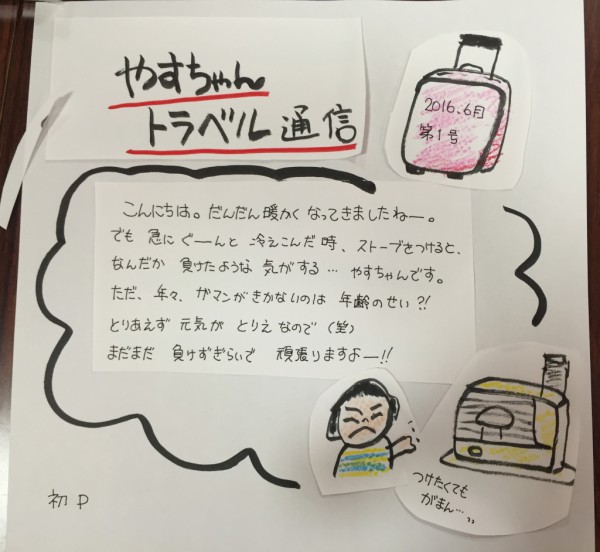 やすちゃん
トラベル通信
2016.6月
第1号
こんにちは。だんだん暖かくなってきましたねー。
でも 急に ぐーんと 冷えこんだ時、ストーブをつけると、
なんだか 負けたような 気がする… やすちゃんです。
ただ、年々、ガマンがきかないのは 年齢のせい?!
とりあえず 元気が とりえなので (笑)
まだまだ 負けずぎらいで 頑張りますよー!!
つけたくても
がまん…
初 P